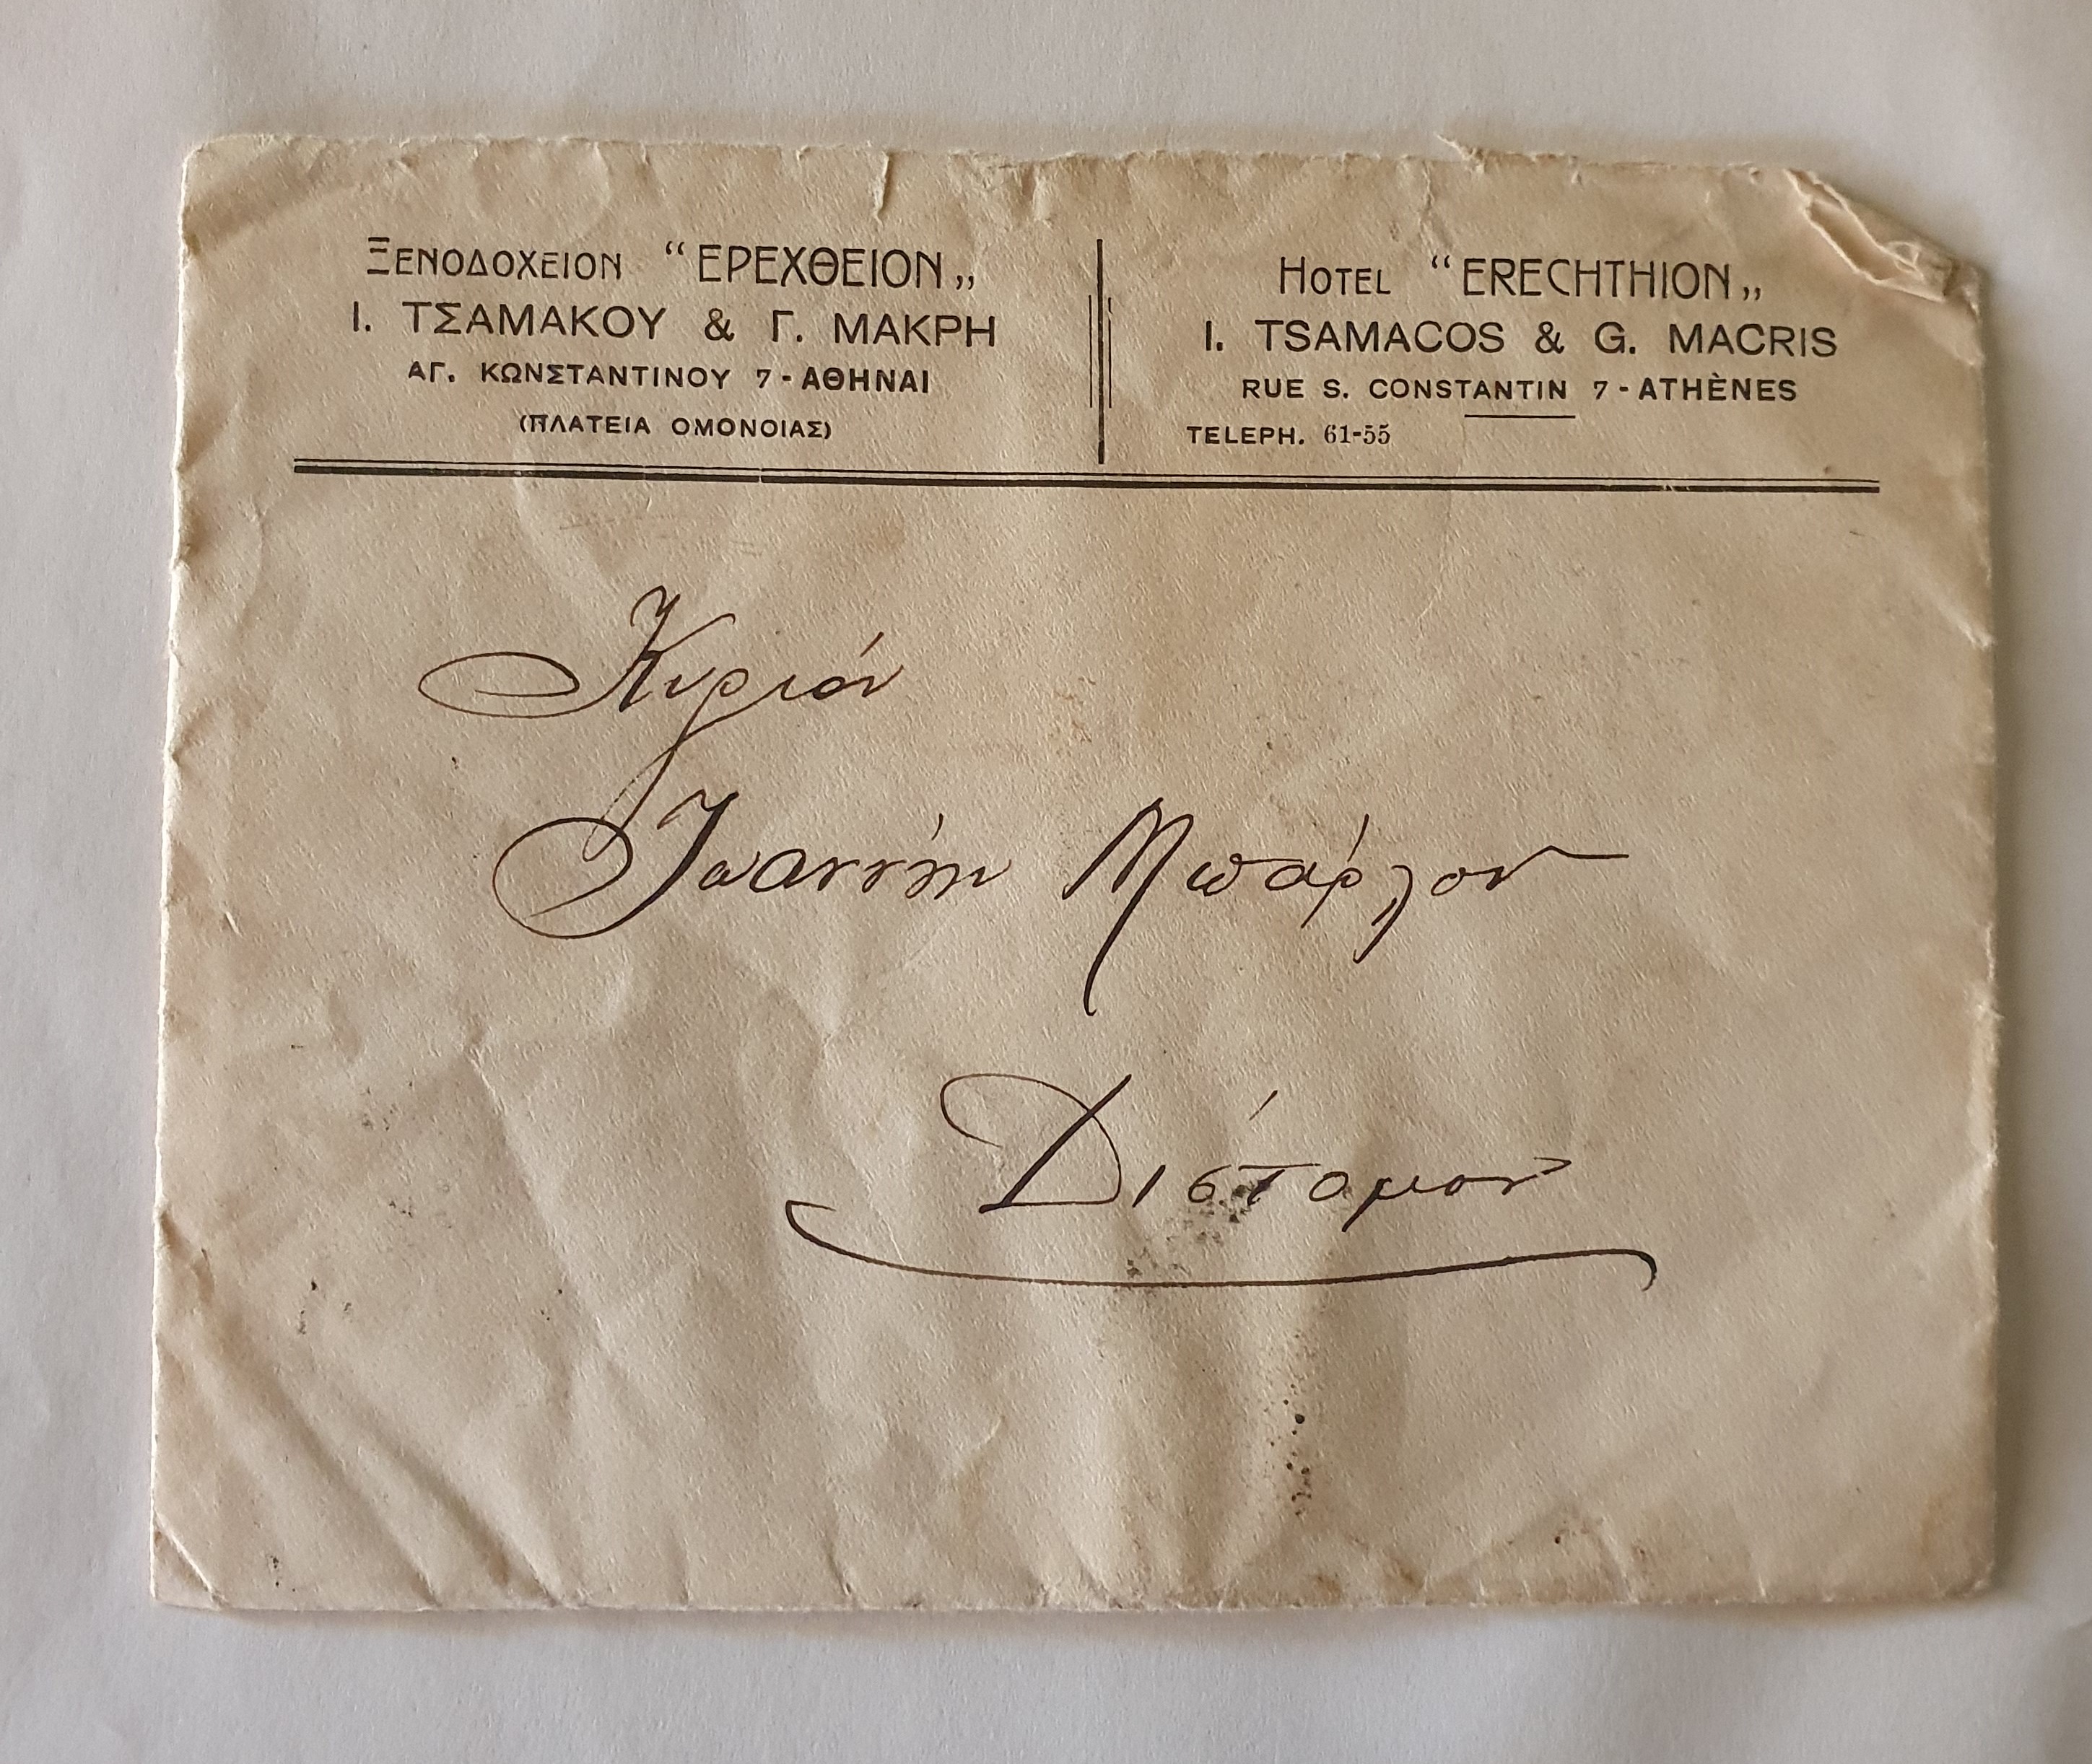 ΞΕΝΟΔΟΧΕΙΟΝ “ΕΡΕΧΘΕΙΟΝ„
Ι. ΤΣΑΜΑΚΟΥ & Γ. ΜΑΚΡΗ
ΑΓ. ΚΩΝΣΤΑΝΤΙΝΟΥ 7 - ΑΘΗΝΑΙ
(ΠΛΑΤΕΙΑ ΟΜΟΝΟΙΑΣ)
HOTEL “ERECHTHION„
I. TSAMACOS & G. MACRIS
RUE S. CONSTANTIN 7 - ATHÈNES
TELEPH. 61-55
Κυριόν
Ιωαννήν Μπάρλον
Δίστομον